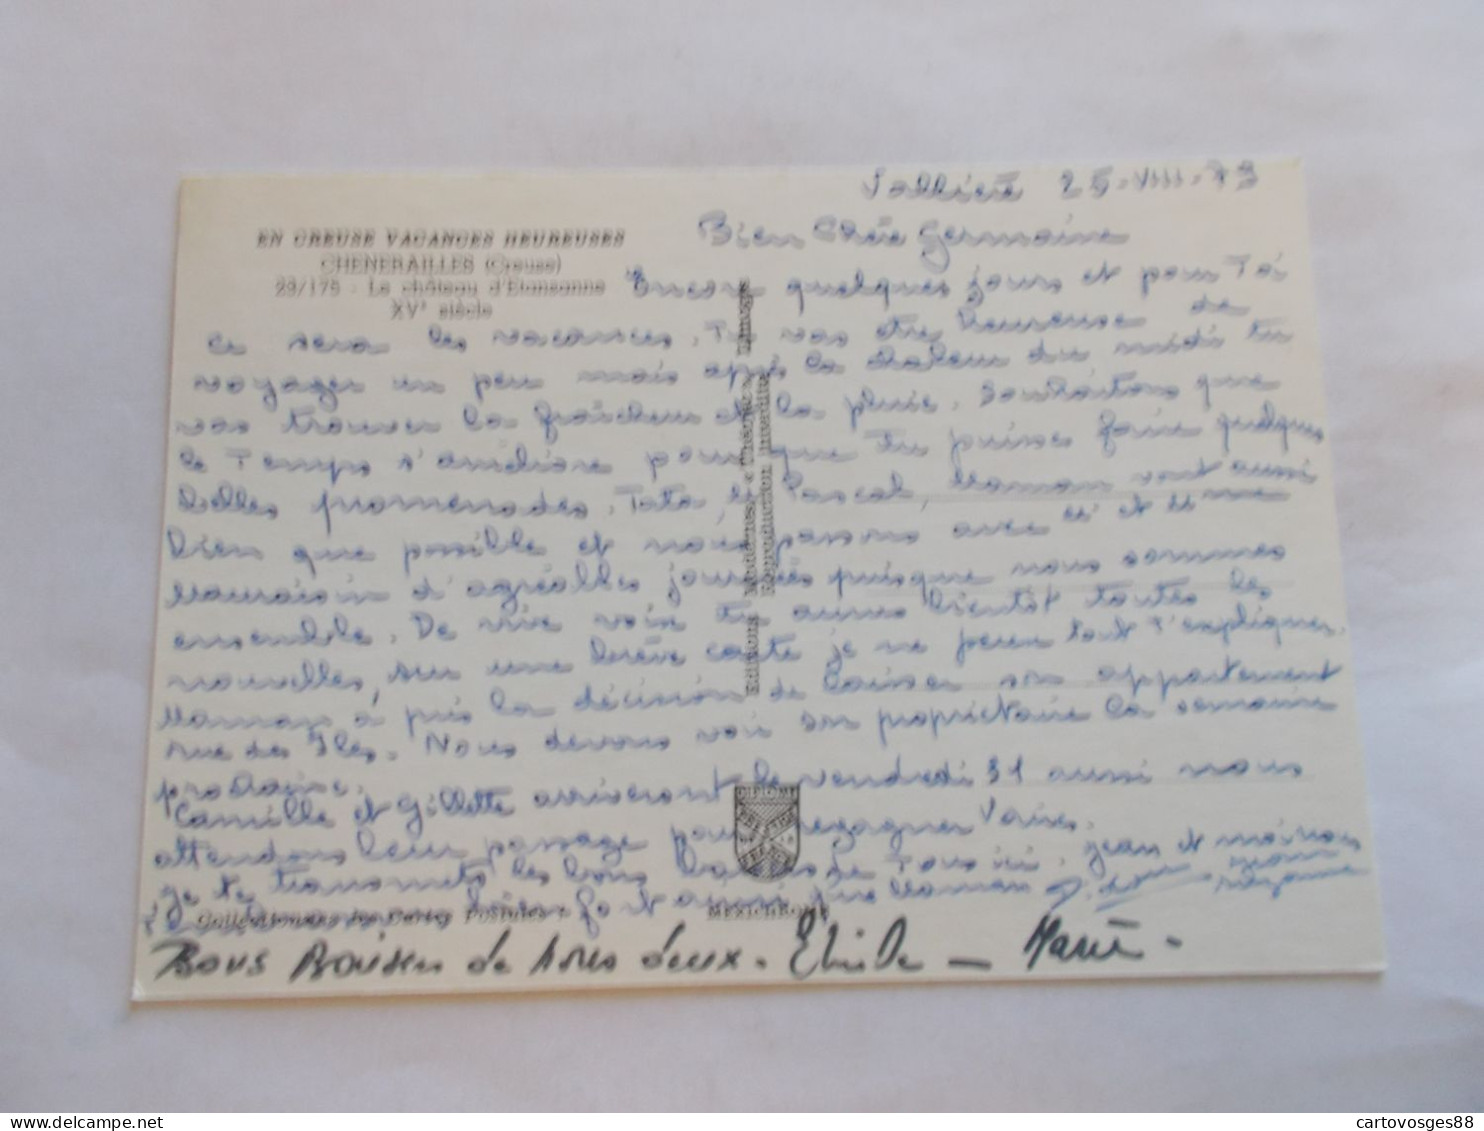 Vallière 25-VIII-79
EN CREUSE VACANCES HEUREUSES
CHENERAILLES (Creuse)
23/175 - Le château d'Etansanne
XVe siècle
Bien Chère Germaine
Encore quelques jours et pour Toi
ce sera les vacances. Tu vas être heureuse de
voyager un peu mais après la chaleur du midi tu
vas trouver la fraîcheur et la pluie. Souhaitons que
le Temps s'améliore pour que Tu puisses faire quelques
belles promenades. Tata, le Pascal, Maman vont aussi
bien que possible et nous passons avec Mr et Mme
d'agréables journées puisque nous sommes
ensemble. De vive voix tu auras bientôt toutes les
nouvelles, sur une brève carte je ne peux tout t'expliquer.
Maman a pris la décision de laisser son appartement
rue des Iles. Nous devons voir son propriétaire la semaine
prochaine.
Camille et Gilette arriveront le vendredi 31 aussi nous
attendons leur passage pour regagner
Je te transmets les bons baisers de Tous ici. Jean et
bien fort ainsi que Maman
Editions Modernes « Théojac » Limoges
Reproduction interdite
DIPLOME
PRESTIGE
MEXICHROME
Bons Baisers de nous deux. - Marie -